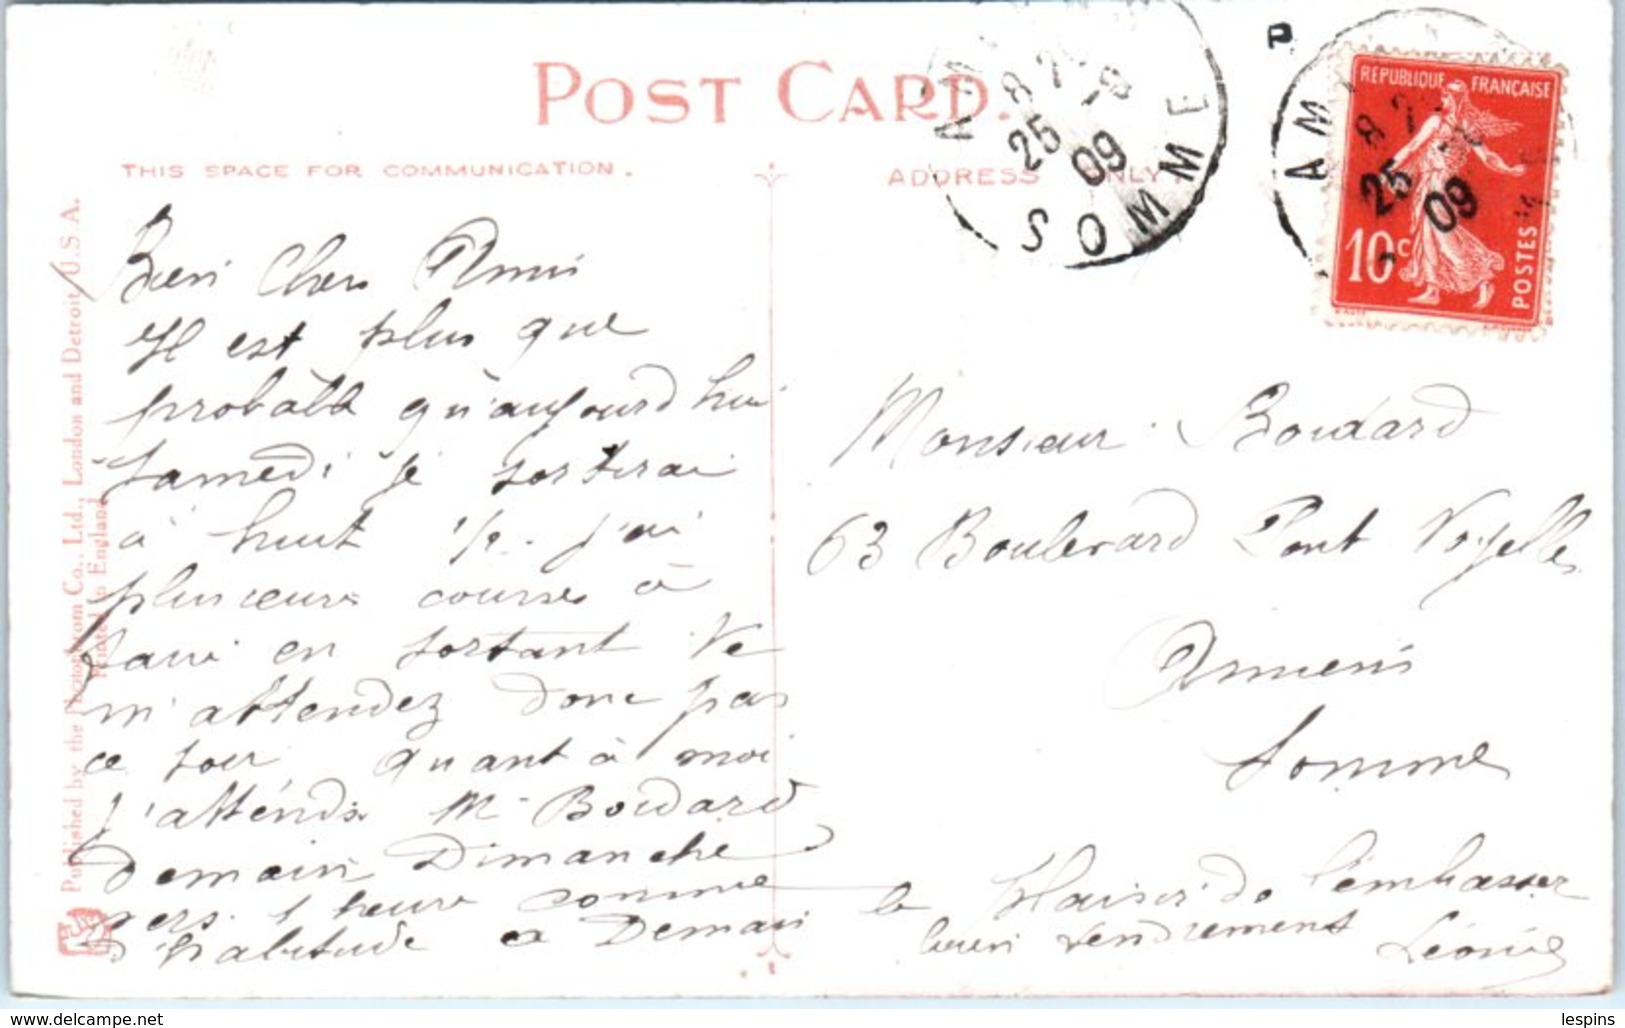 POST CARD.
THIS SPACE FOR COMMUNICATION.
ADDRESS ONLY
Published by the Photochrom Co., Ltd., London and Detroit U.S.A.
Printed in England
Bien Cher Ami
Il est plus que
probable qu'aujourd hui
samedi je sortirai
à huit 1/2. j'ai
plusieurs courses à
faire en sortant Ne
m'attendez donc pas
ce soir quant à moi
j'attends Mr Boudard
Demain Dimanche
vers 1 heure comme
d'habitude a Demain le plaisir de t'embrasser
bien tendrement
Léonie
Monsieur Boudard
63 Boulevard Pont Noyelles
Amiens
Somme
AM
8
25
09
SOMME
P
AM
8
25
09
RÉPUBLIQUE FRANÇAISE
10c
POSTES
lespins